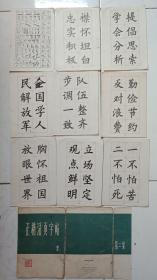 提倡思索
学会分析
襟怀坦白
忠实积极
勤俭节约
反对浪费
队伍整齐
步调一致
全国学人
民解放军
一不怕苦
二不怕死
立场坚定
观点鲜明
胸怀祖国
放眼世界
正楷活页字帖